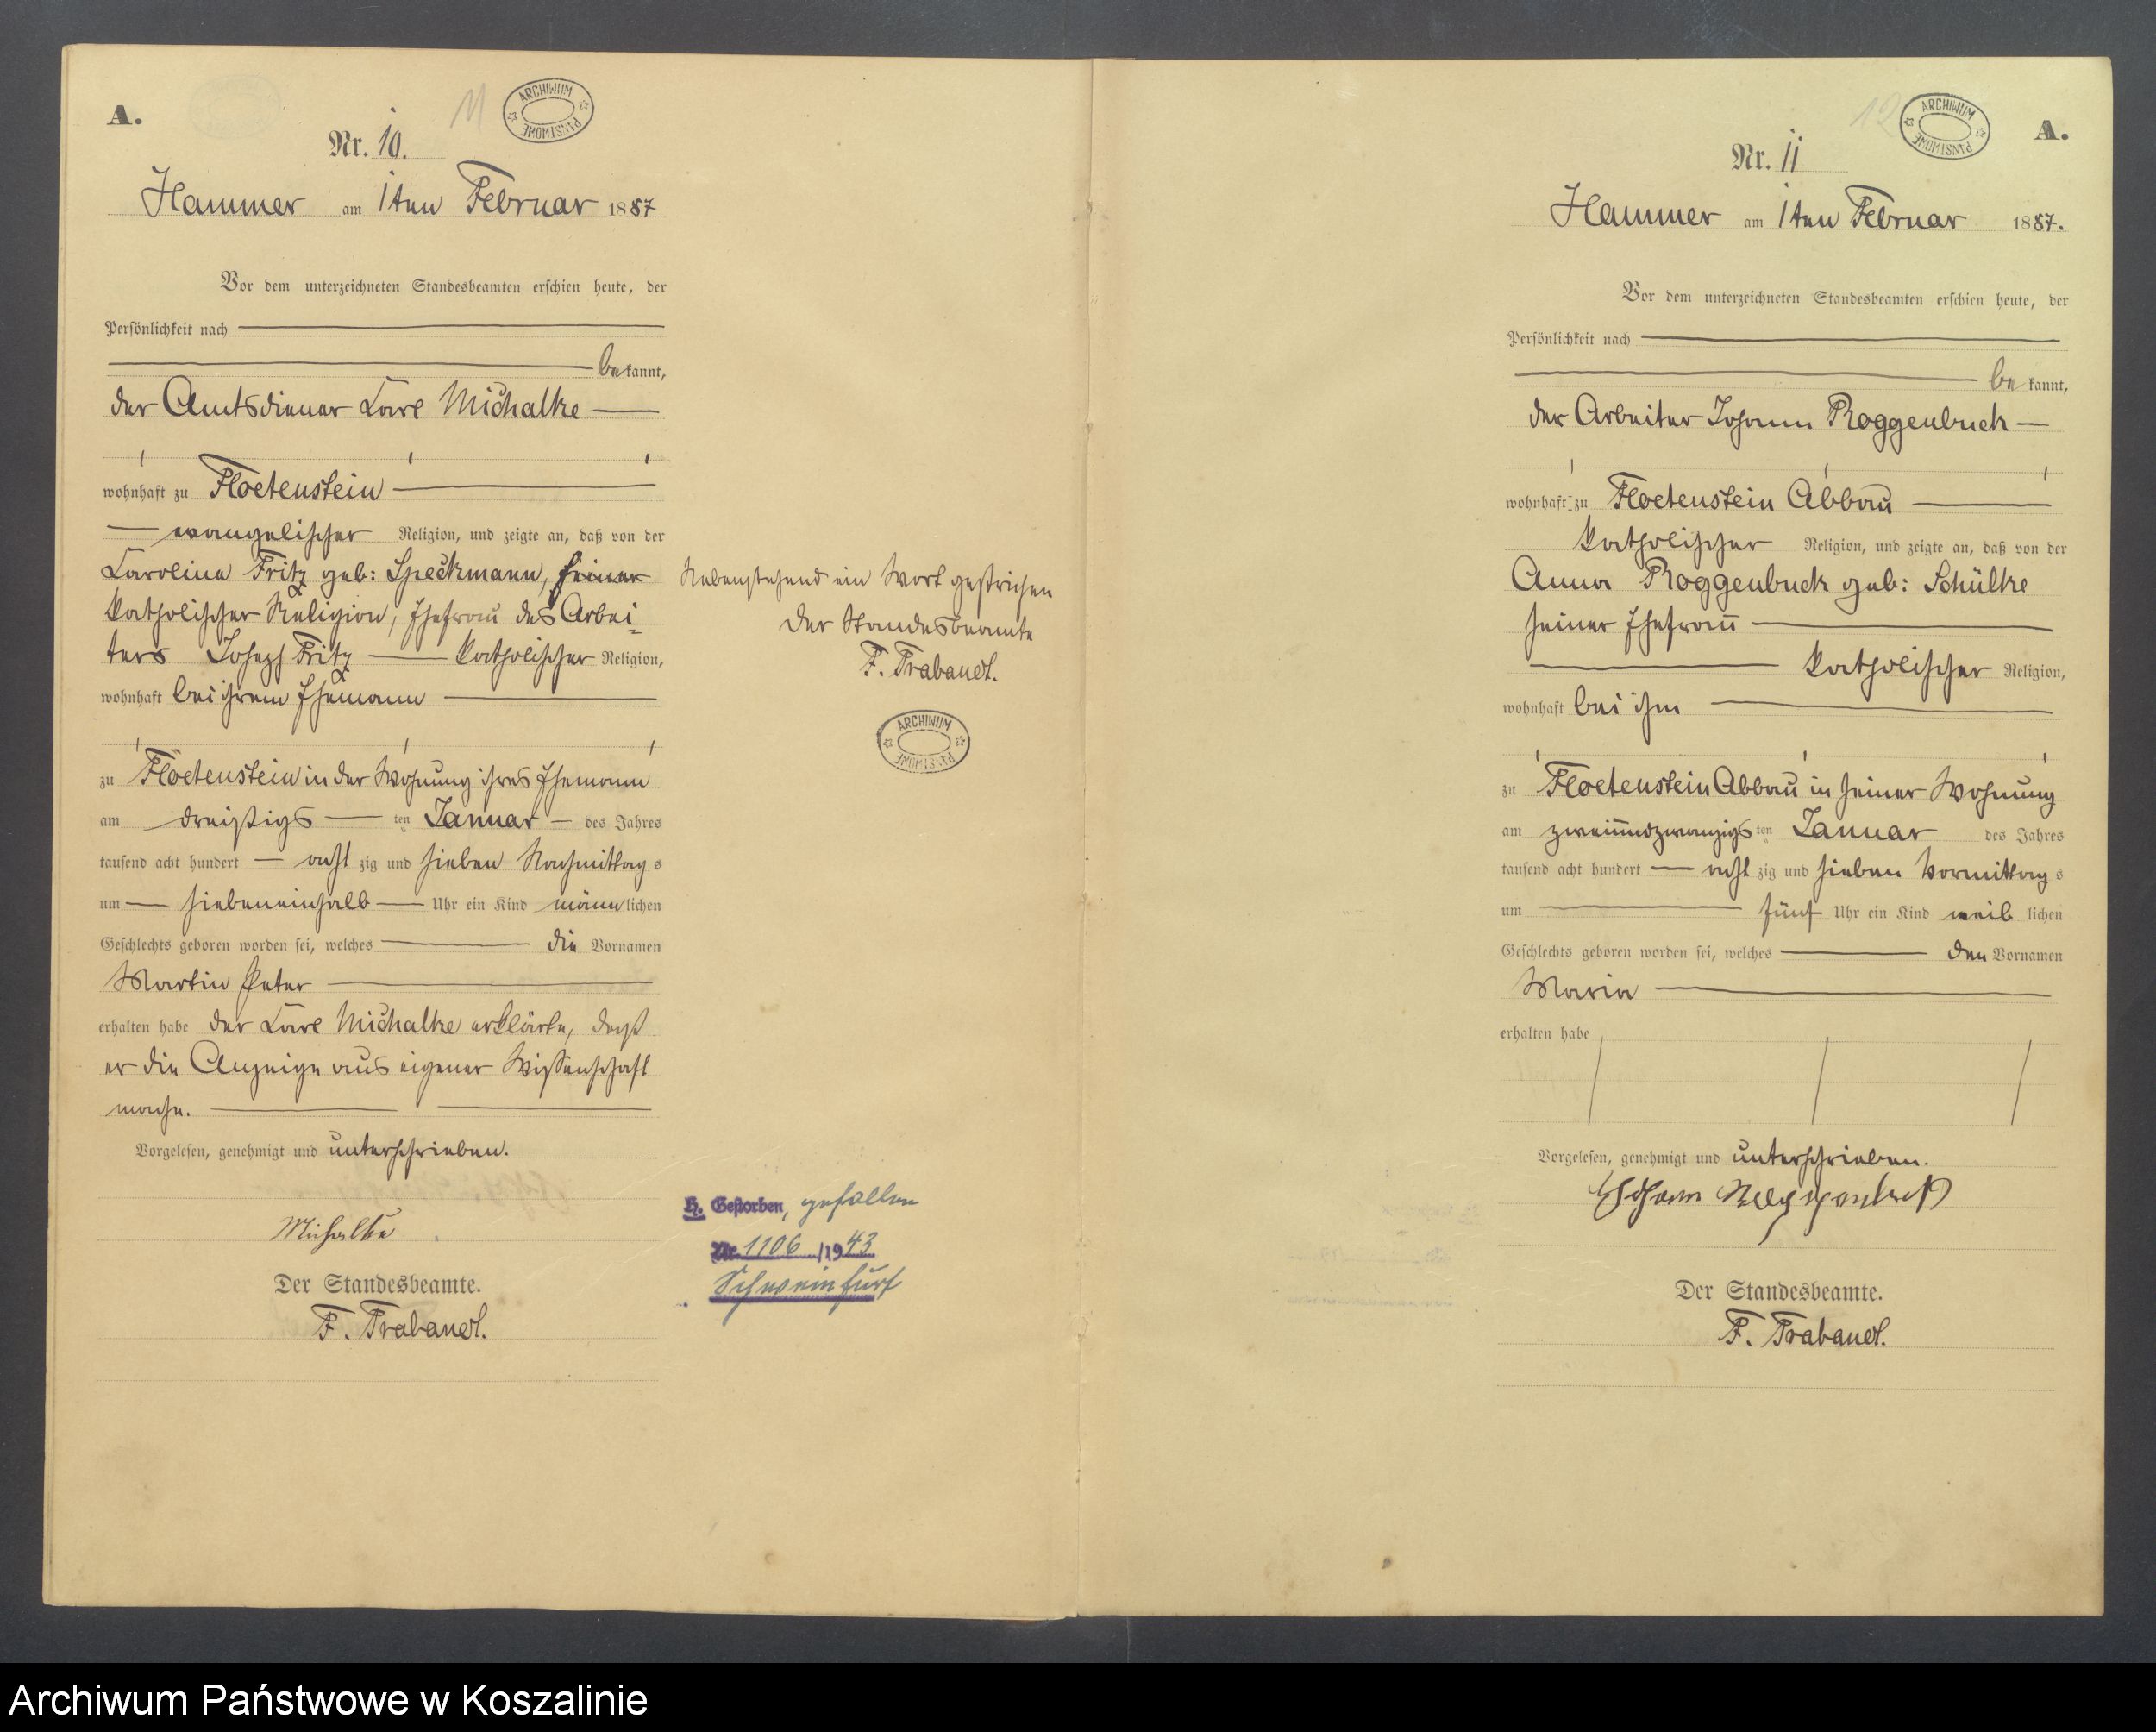 A.
11
ARCHIWUM PAŃSTWOWE
Nr. 10.
Hammer am 1ten Februar 1887
Vor dem unterzeichneten Standesbeamten erschien heute, der
Persönlichkeit nach
bekannt,
der Amtsdiener Carl Michalke
wohnhaft zu Floetenstein
evangelischer Religion, und zeigte an, daß von der
Caroline Fritz geb: Speckmann, seiner
katholischer Religion, Ehefrau des Arbei=
ters Joseph Fritz katholischer Religion,
wohnhaft bei ihrem Ehemann
zu Floetenstein in der Wohnung ihres Ehemann
am dreißigsten Januar des Jahres
tausend acht hundert achtzig und sieben Nachmittags
um siebeneinhalb Uhr ein Kind männlichen
Geschlechts geboren worden sei, welches die Vornamen
Martin Peter
erhalten habe der Carl Michalke erklärte, daß
er die Anzeige aus eigener Wissenschaft
mache.
Vorgelesen, genehmigt und unterschrieben.
Michalke
Der Standesbeamte.
F. Trabandt.
Nebenstehend ein Wort gestrichen
Der Standesbeamte
F. Trabandt.
ARCHIWUM PAŃSTWOWE
H. Gestorben, gefallen
Nr. 1106 /1943
Schweinfurt
12
ARCHIWUM PAŃSTWOWE
A.
Nr. 11
Hammer am 1ten Februar 1887.
Vor dem unterzeichneten Standesbeamten erschien heute, der
Persönlichkeit nach
bekannt,
der Arbeiter Johann Roggenbuck
wohnhaft zu Floetenstein Abbau
katholischer Religion, und zeigte an, daß von der
Anna Roggenbuck geb: Schülke
seiner Ehefrau
katholischer Religion,
wohnhaft bei ihm
zu Floetenstein Abbau in seiner Wohnung
am zweiundzwanzigsten Januar des Jahres
tausend acht hundert achtzig und sieben Vormittags
um fünf Uhr ein Kind weiblichen
Geschlechts geboren worden sei, welches den Vornamen
Maria
erhalten habe
Vorgelesen, genehmigt und unterschrieben.
Johann
Der Standesbeamte.
F. Trabandt.
Archiwum Państwowe w Koszalinie